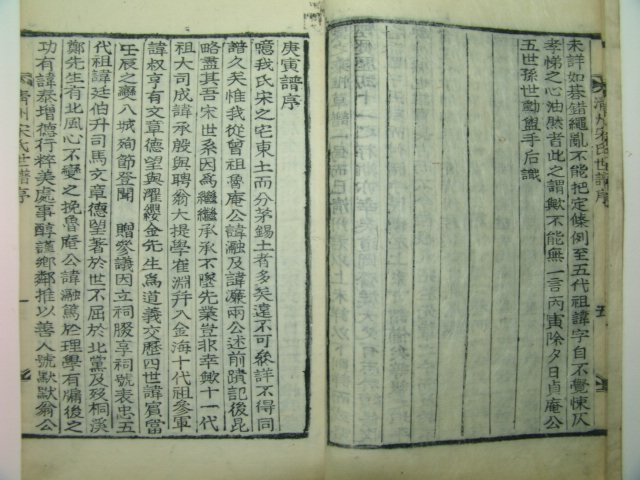 未詳如碁錯繩亂不能把定條例至五代祖諱字自不覺悚仄
孝悌之心油然者此之謂歟不能無一言丙寅除夕日貞庵公
五世孫世勳盥手后識
淸州宋氏世譜序
五
庚寅譜序
噫我氏宋之宅東土而分茅錫土者多矣遠不可後詳不得同
譜久矣惟我從曾祖魯庵公諱融及諱廉兩公述前蹟記後昆
略盡其吾宋世系因爲繼繼承承不墜先業豈非幸歟十一代
祖大司成諱承殷與聘翁大提學崔淵幷入金海十代祖參軍
諱叔亨有文章德望與濯纓金先生爲道義交歷四世諱賓當
壬辰之變八城殉節登聞 贈參議因立祠腏享祠號表忠五
代祖諱廷伯升司馬文章德望著於世不屈於北黨及歿桐溪
鄭先生有北風心不變之挽魯庵公諱融篤於理學有牖後之
功有諱泰增德行粹美處事醇謹鄉鄰推以善人號默默翁公
淸州宋氏世譜序